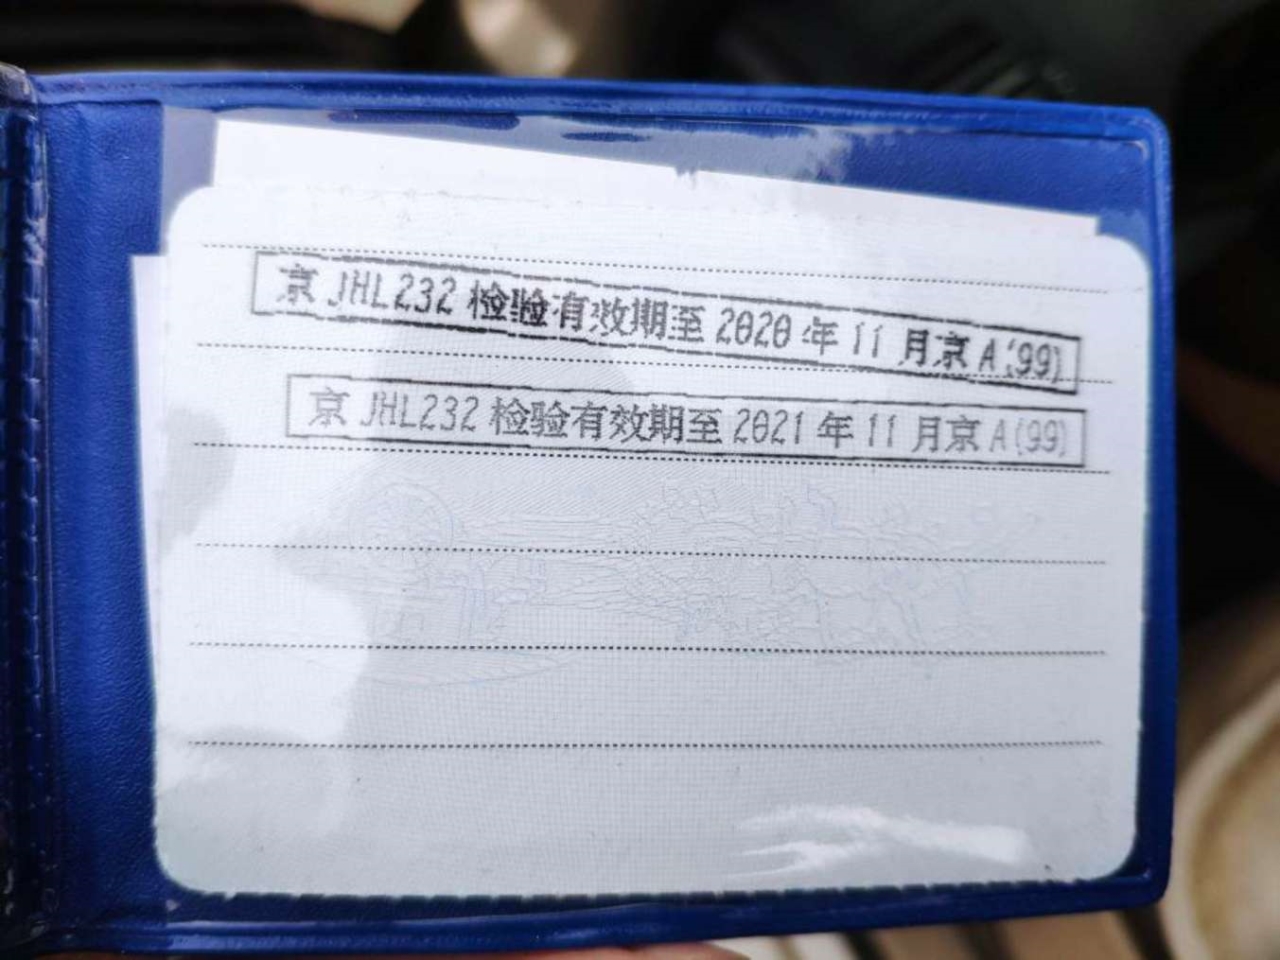 京 JHL232 检验有效期至 2020 年 11 月京 A(99)
京 JHL232 检验有效期至 2021 年 11 月京 A(99)